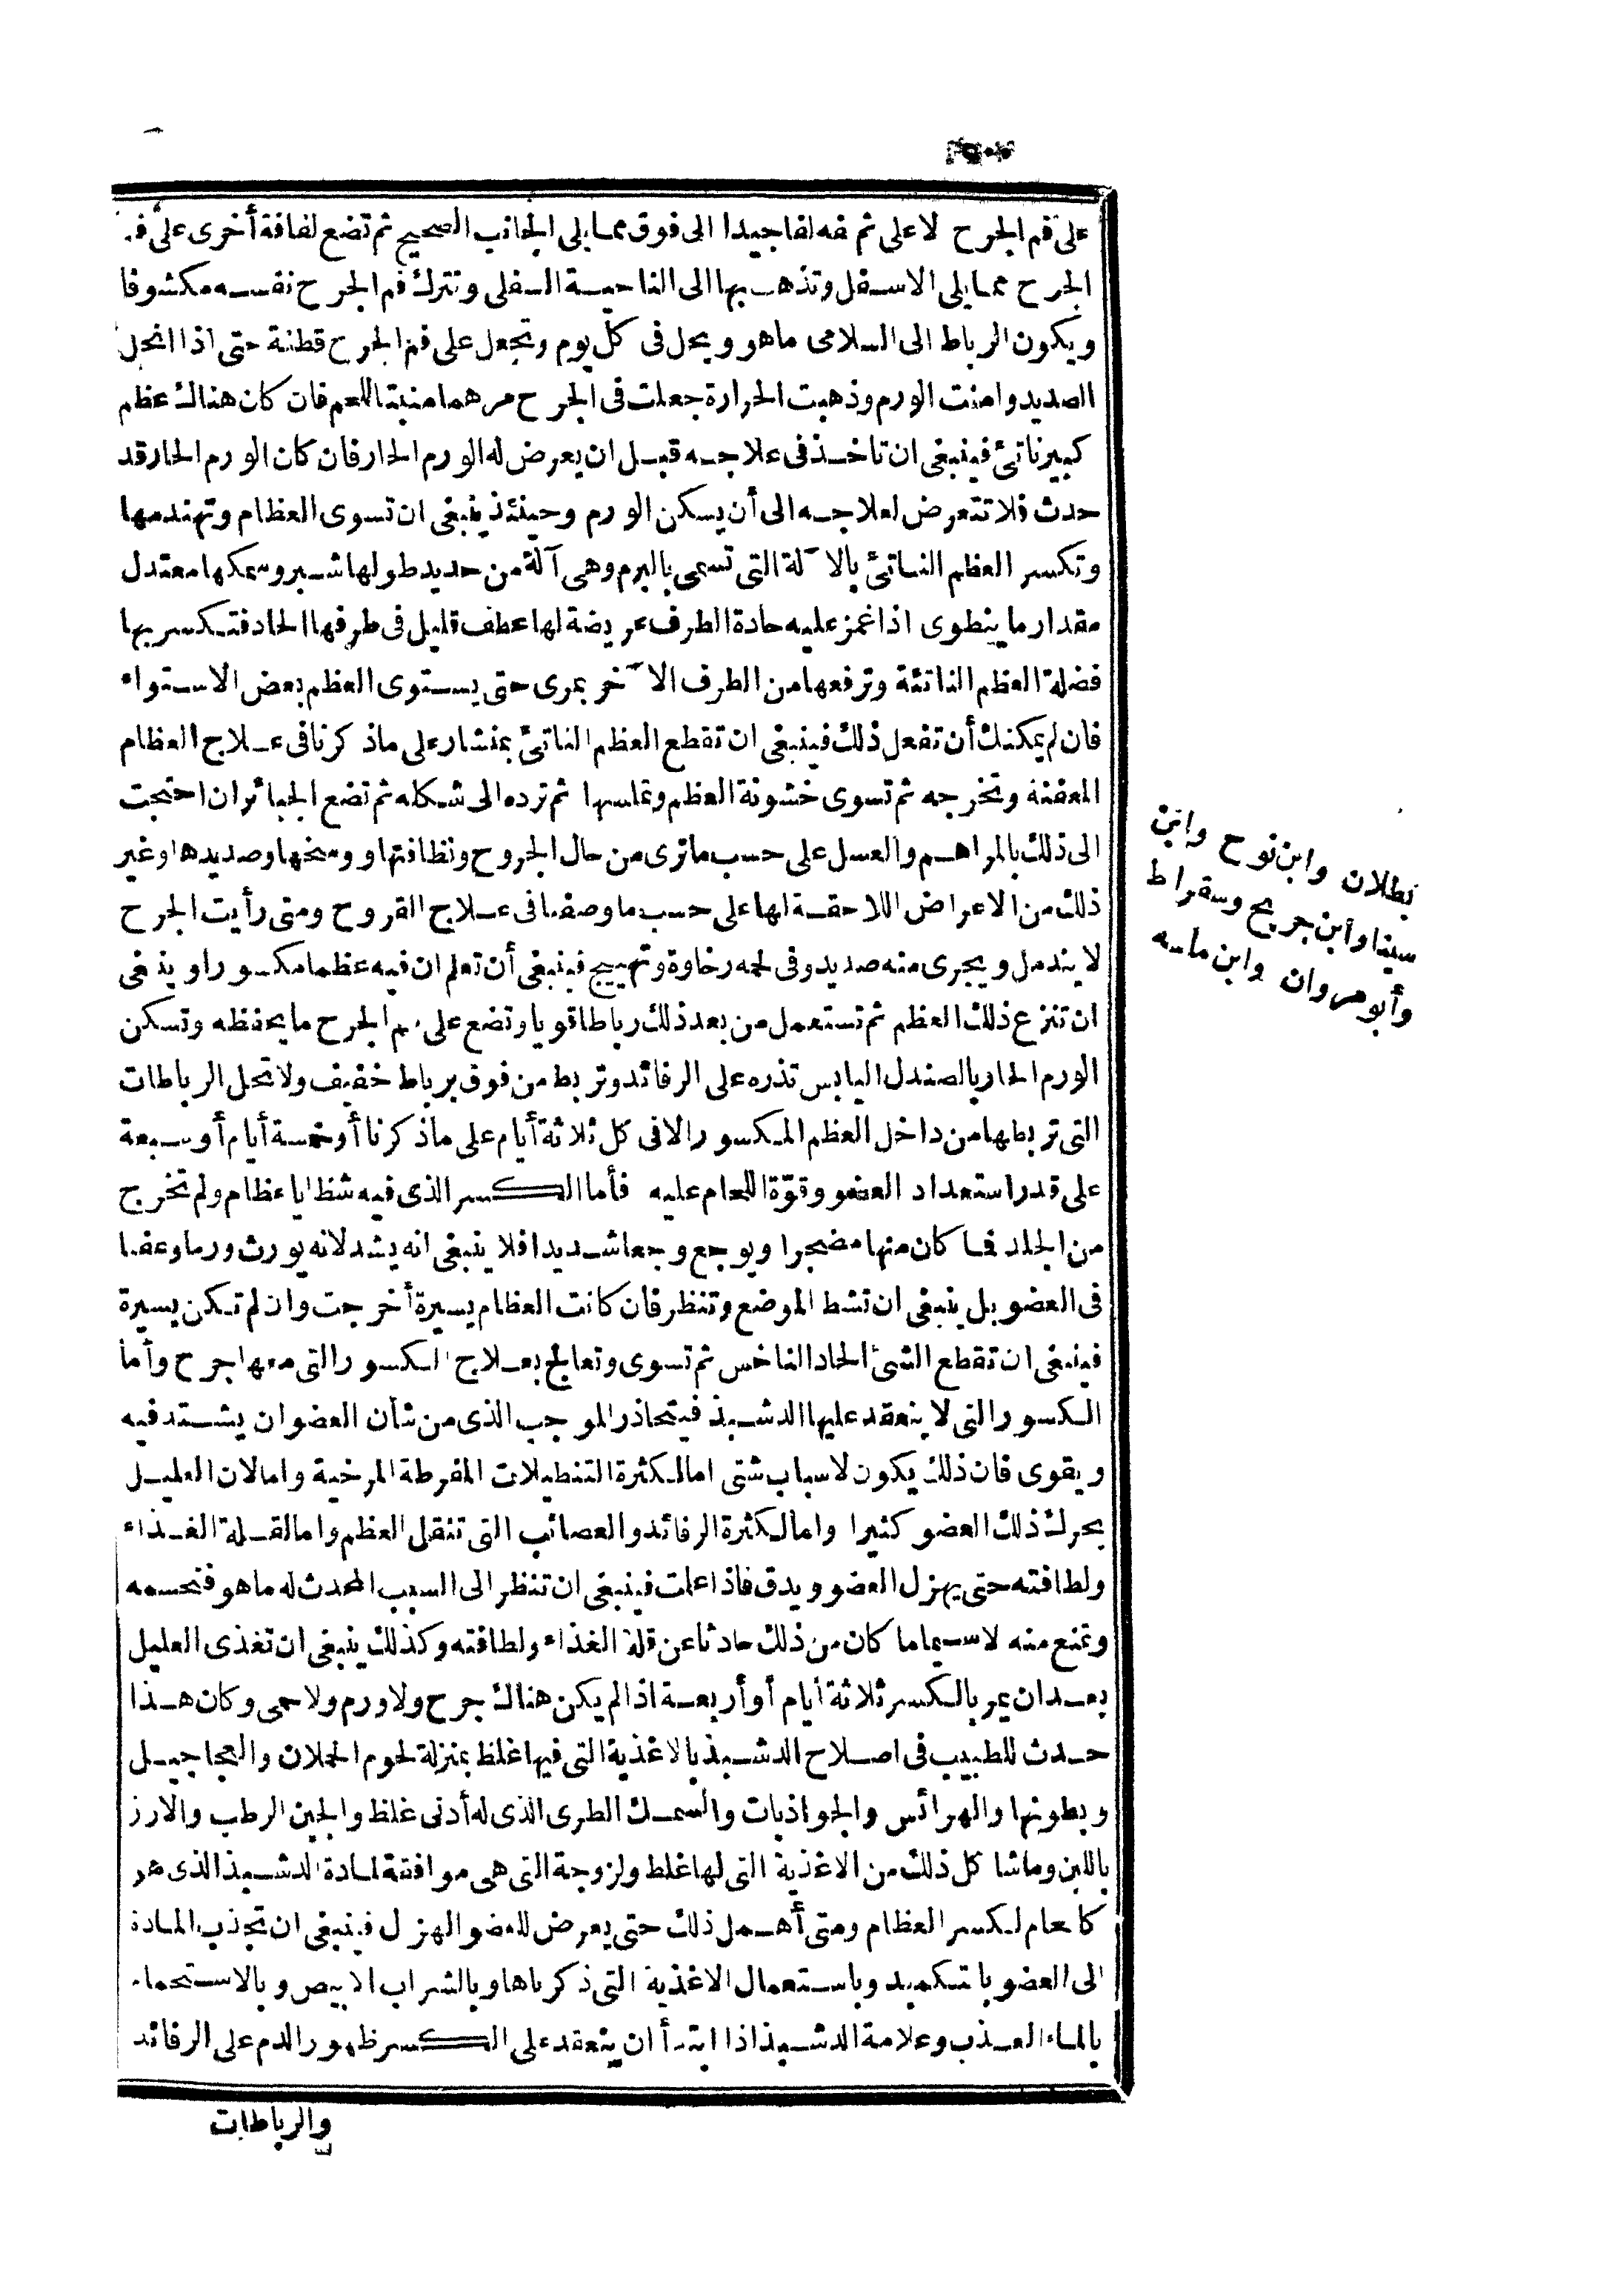 على فم الجرح لا على ثم لفه لفا جيدا الى فوق مما يلى الجانب الصحيح ثم تضع لفافة أخرى على
الجرح مما يلى الاسفل وتذهب بها الى الناحية السفلى وتترك فم الجرح نفسه مكشوفا
ويكون الرباط الى السلامى ما هو ويحل فى كل يوم وتجعل على فم الجرح قطنة حتى اذا انحل
الصديد وامنت الورم وذهبت الحرارة جعلت فى الجرح مرهما منبتا للحم فان كان هناك عظم
كبير ناتئ فينبغى ان تاخذ فى علاجه قبل ان يعرض له الورم الحار فان كان الورم الحار قد
حدث فلا تتعرض لعلاجه الى أن يسكن الورم وحينئذ ينبغى ان تسوى العظام وتهندمها
وتكسر العظم الناتئ بالآلة التى تسمى بالبرم وهى آلة من حديد طولها شبر وسمكها معتدل
مقدار ما ينطوى اذا غمز عليه حادة الطرف عريضة لها عطف قليل فى طرفها الحاد فتكسر بها
فضلة العظم الناتئة وترفعها من الطرف الآخر بمرى حتى يستوى العظم بعض الاستواء
فان لم يمكنك أن تفعل ذلك فينبغى ان تقطع العظم الناتئ بمنشار على ماذكرنا فى علاج العظام
المعفنة وتخرجه ثم تسوى خشونة العظم وتملسها ثم ترده الى شكله ثم تضع الجبائر ان احتجت
الى ذلك بالمراهم والعسل على حسب ما ترى من حال الجروح ونظافتها ووسخها وصديدها وغير
ذلك من الاعراض اللاحقة لها على حسب ما وصفنا فى علاج القروح ومتى رأيت الجرح
لا يندمل ويجرى منه صديد وفى لحمه رخاوة وتهييج فينبغى أن تعلم ان فيه عظما مكسورا وينبغى
ان تنزع ذلك العظم ثم تستعمل من بعد ذلك رباطا قويا وتضع على فم الجرح ما يحفظه وتسكن
الورم الحار بالصندل اليابس تذره على الرفائد وتربط من فوق برباط خفيف ولا تحل الرباطات
التى تربطها من داخل العظم المكسور الا فى كل ثلاثة أيام على ماذكرنا أو خمسة أيام أو سبعة
على قدر استعداد العضو وقوّة اللحام عليه فأما الكسر الذى فيه شظايا عظام ولم تخرج
من الجلد فما كان منها مضجرا ويوجع وجعا شديدا فلا ينبغى انه يشد لانه يورث ورما وعفنا
فى العضو بل ينبغى ان تشط الموضع وتنظر فان كانت العظام يسيرة أخرجت وان لم تكن يسيرة
فينبغى ان تقطع الشئ الحاد الناخس ثم تسوى وتعالج بعلاج الكسور التى معها جرح وأما
الكسور التى لا ينعقد عليها الدشبذ فيتحاذر الموجب الذى من شأن العضو ان يشتد فيه
ويقوى فان ذلك يكون لاسباب شتى اما لكثرة التنطيلات المفرطة المرخية واما لان العليل
يحرك ذلك العضو كثيرا واما لكثرة الرفائد والعصائب التى تنقل العظم واما لقلة الغذاء
ولطافته حتى يهزل العضو ويدق فاذا علمت فينبغى ان تنظر الى السبب المحدث له ما هو فتحسمه
وتمنع منه لاسيما ما كان من ذلك حادثا عن قلة الغذاء ولطافته وكذلك ينبغى ان تغذى العليل
بعد ان يمر بالكسر ثلاثة أيام أو أربعة اذا لم يكن هناك جرح ولا ورم ولا حمى وكان هذا
حدث للطبيب فى اصلاح الدشبذ بالاغذية التى فيها غلظ بمنزلة لحوم الحملان والعجاجيل
وبطونها والهرائس والجواذبات والسمك الطرى الذى له أدنى غلظ والجبن الرطب والارز
باللبن وما شاكل ذلك من الاغذية التى لها غلظ ولزوجة التى هى موافقة لمادة الدشبذ الذى هو
كاللحام لكسر العظام ومتى أهمل ذلك حتى يعرض للعضو الهزل فينبغى ان تجذب المادة
الى العضو بالتكميد وباستعمال الاغذية التى ذكرناها وبالشراب الابيض وبالاستحمام
بالماء العذب وعلامة الدشبذ اذا ابتدأ ان ينعقد على الكسر ظهور الدم على الرفائد
والرباطات
بطلان وابن نوح وابن
سينا وابن جريج وسقراط
وأبو مروان وابن ماسه